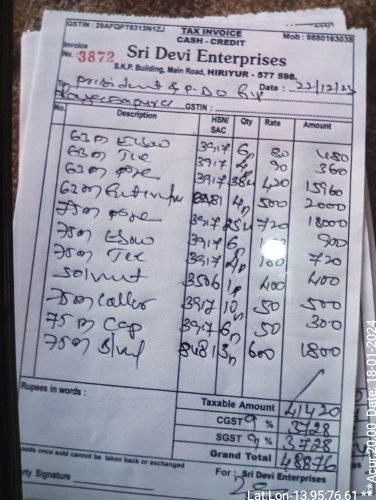 GSTIN : 29AFQPT6313N1ZJ
TAX INVOICE
CASH - CREDIT
Mob : 9880163038
Invoice
No. 3872
Sri Devi Enterprises
S.K.P. Building, Main Road, HIRIYUR - 577 598.
To, president & P.DO Date : 22/12/23
GSTIN :
No. Description HSN/SAC Qty Rate Amount
63m Elbow 3917 6 80 480
63m Tee 3917 4 90 360
63m pipe 3917 38 420 15960
63m 8481 4 500 2000
75m pipe 3917 25 720 18000
75m Elbow 3917 6 900
75m Tee 3917 4 180 720
Solvent 3506 1 400 400
75m 3917 10 50 500
75m Cap 3917 6 50 300
75m 8481 3 600 1800
Rupees in words :
Taxable Amount 41420
CGST 9 % 3728
SGST 9 % 3728
Grand Total 48876
Goods once sold cannot be taken back or exchanged
Party Signature
For : Sri Devi Enterprises
Lat Lon 13.95:76.61 *** Acur 20.00 Date: 18-01-2024